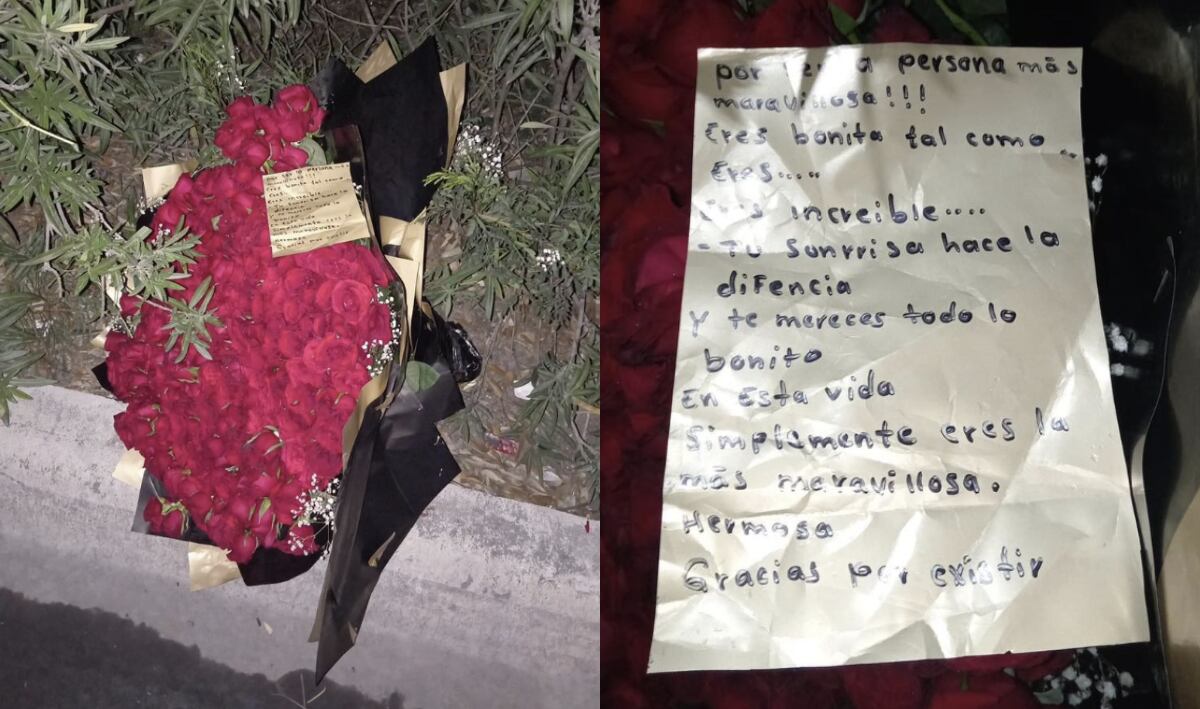 por ser la persona más
maravillosa!!!
Eres bonita tal como
Eres....
Eres increible....
- Tu sonrrisa hace la
difencia
Y te mereces todo lo
bonito
En Esta vida
Simplemente eres la
más maravillosa.
Hermosa
Gracias por existir